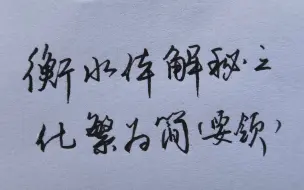 衡水体解秘之
化繁为简(要领)